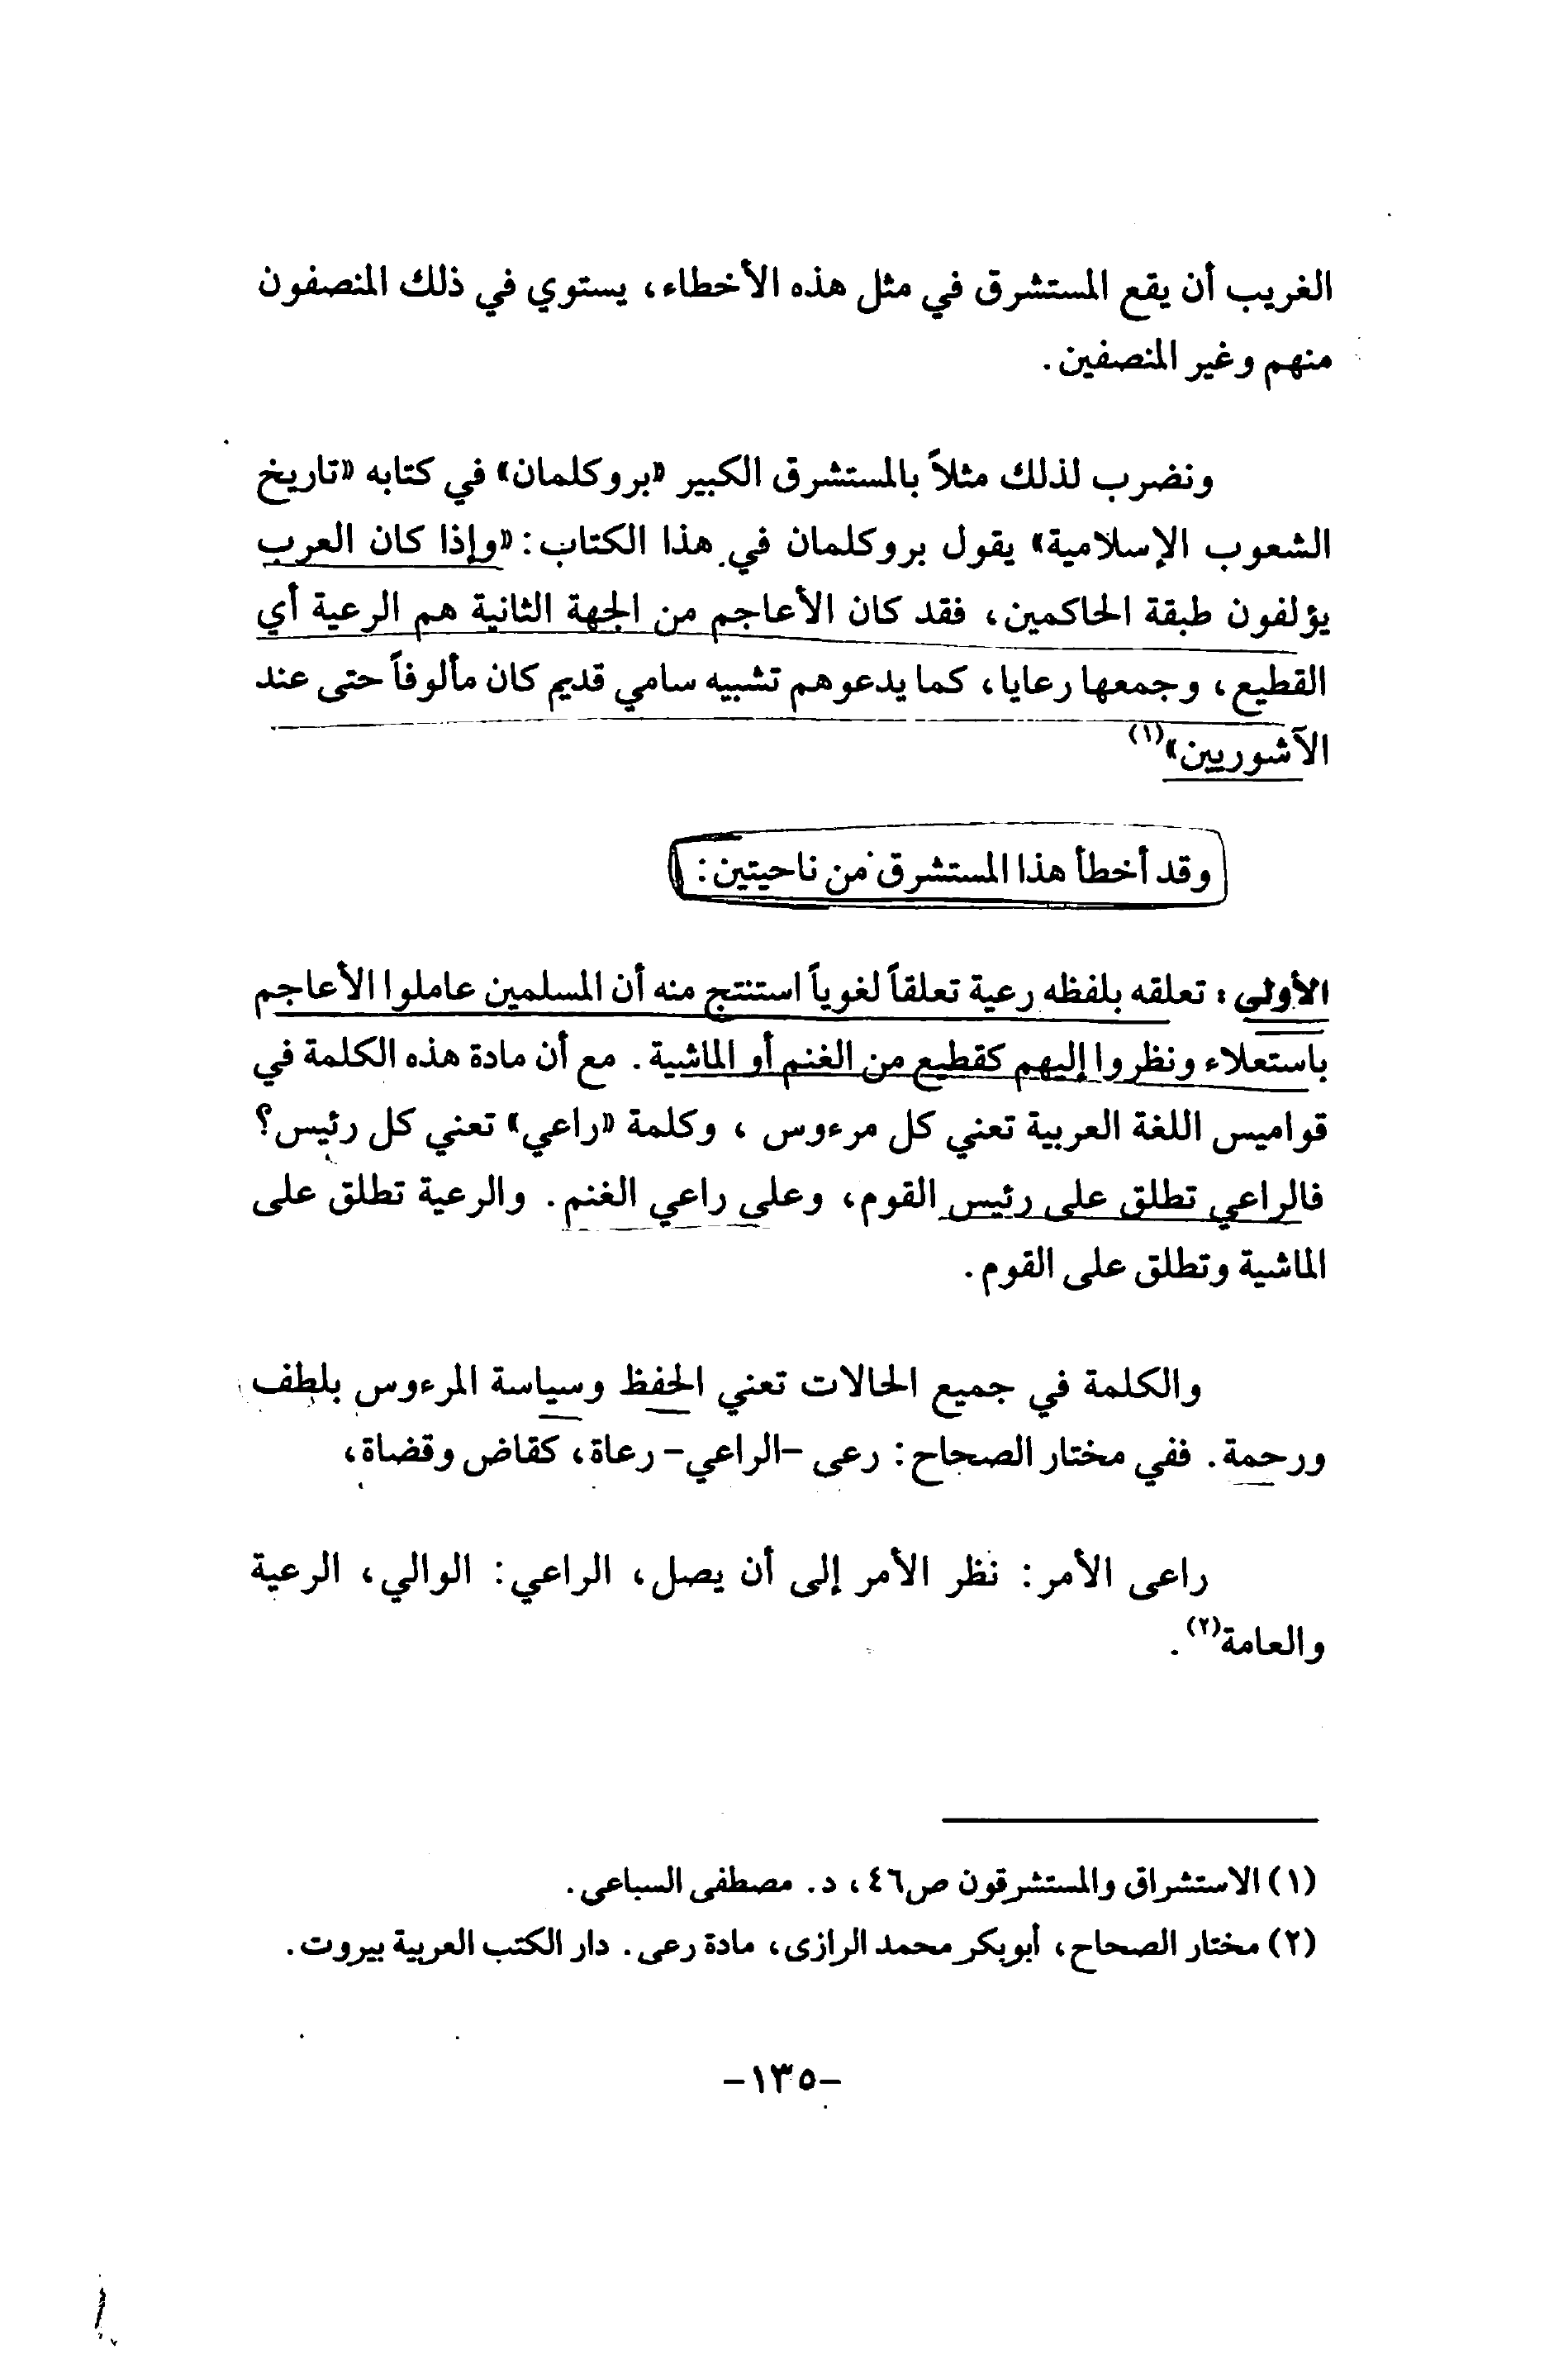 الغريب أن يقع المستشرق في مثل هذه الأخطاء، يستوي في ذلك المنصفون
منهم وغير المنصفين.
ونضرب لذلك مثلاً بالمستشرق الكبير «بروكلمان» في كتابه «تاريخ
الشعوب الإسلامية» يقول بروكلمان في هذا الكتاب: «وإذا كان العرب
يؤلفون طبقة الحاكمين، فقد كان الأعاجم من الجهة الثانية هم الرعية أي
القطيع، وجمعها رعايا، كما يدعوهم تشبيه سامي قديم كان مألوفاً حتى عند
الآشوريين»(١)
وقد أخطأ هذا المستشرق من ناحيتين:
الأولى: تعلقه بلفظه رعية تعلقاً لغوياً استنتج منه أن المسلمين عاملوا الأعاجم
باستعلاء ونظروا إليهم كقطيع من الغنم أو الماشية. مع أن مادة هذه الكلمة في
قواميس اللغة العربية تعني كل مرءوس، وكلمة «راعي» تعني كل رئيس؟
فالراعي تطلق على رئيس القوم، وعلى راعي الغنم. والرعية تطلق على
الماشية وتطلق على القوم.
والكلمة في جميع الحالات تعني الحفظ وسياسة المرءوس بلطف
ورحمة. ففي مختار الصحاح: رعى -الراعي- رعاة، كقاض وقضاة،
راعى الأمر: نظر الأمر إلى أن يصل، الراعي: الوالي، الرعية
والعامة(٢).
(١) الاستشراق والمستشرقون ص٤٦، د. مصطفى السباعى.
(٢) مختار الصحاح، أبوبكر محمد الرازى، مادة رعى. دار الكتب العربية بيروت.
-١٣٥-